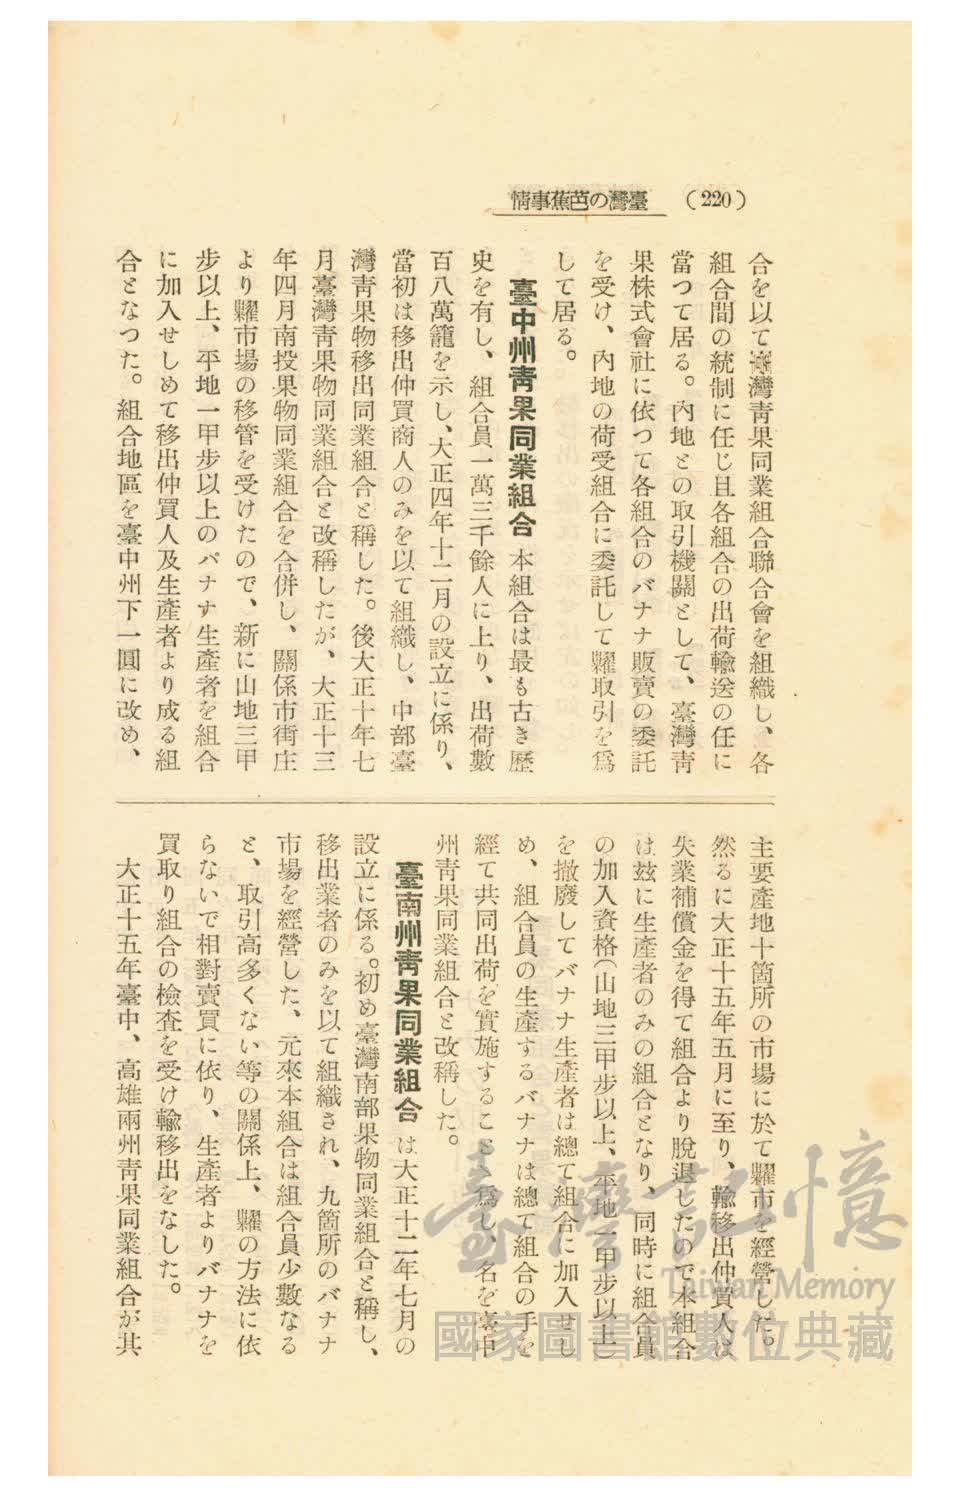 (220) 臺灣の芭蕉事情
合を以て臺灣靑果同業組合聯合會を組織し、各
組合間の統制に任じ且各組合の出荷輸送の任に
當つて居る。內地との取引機關として、臺灣靑
果株式會社に依つて各組合のバナナ販賣の委託
を受け、內地の荷受組合に委託して糶取引を爲
して居る。
臺中州靑果同業組合 本組合は最も古き歷
史を有し、組合員一萬三千餘人に上り、出荷數
百八萬籠を示し、大正四年十二月の設立に係り、
當初は移出仲買商人のみを以て組織し、中部臺
灣靑果物移出同業組合と稱した。後大正十年七
月臺灣靑果物同業組合と改稱したが、大正十三
年四月南投果物同業組合を合併し、關係市街庄
より糶市場の移管を受けたので、新に山地三甲
步以上、平地一甲步以上のバナナ生產者を組合
に加入せしめて移出仲買人及生產者より成る組
合となつた。組合地區を臺中州下一圓に改め、
主要產地十箇所の市場に於て糶市を經營した。
然るに大正十五年五月に至り、輸移出仲買人は
失業補償金を得て組合より脫退したので本組合
は玆に生產者のみの組合となり、同時に組合員
の加入資格(山地三甲步以上、平地一甲步以上)
を撤廢してバナナ生產者は總て組合に加入せし
め、組合員の生產するバナナは總て組合の手を
經て共同出荷を實施することゝ爲し、名を臺中
州靑果同業組合と改稱した。
臺南州靑果同業組合 は大正十二年七月の
設立に係る。初め臺灣南部果物同業組合と稱し、
移出業者のみを以て組織され、九箇所のバナナ
市場を經營した、元來本組合は組合員少數なる
と、取引高多くない等の關係上、糶の方法に依
らないで相對賣買に依り、生產者よりバナナを
買取り組合の檢査を受け輸移出をなした。
大正十五年臺中、高雄兩州靑果同業組合が其
臺灣記憶
Taiwan Memory
國家圖書館數位典藏